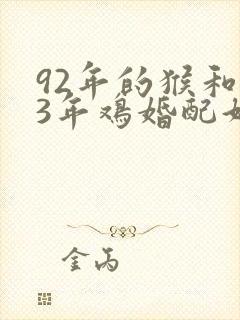 92年的猴和
3年鸡婚配
金丙